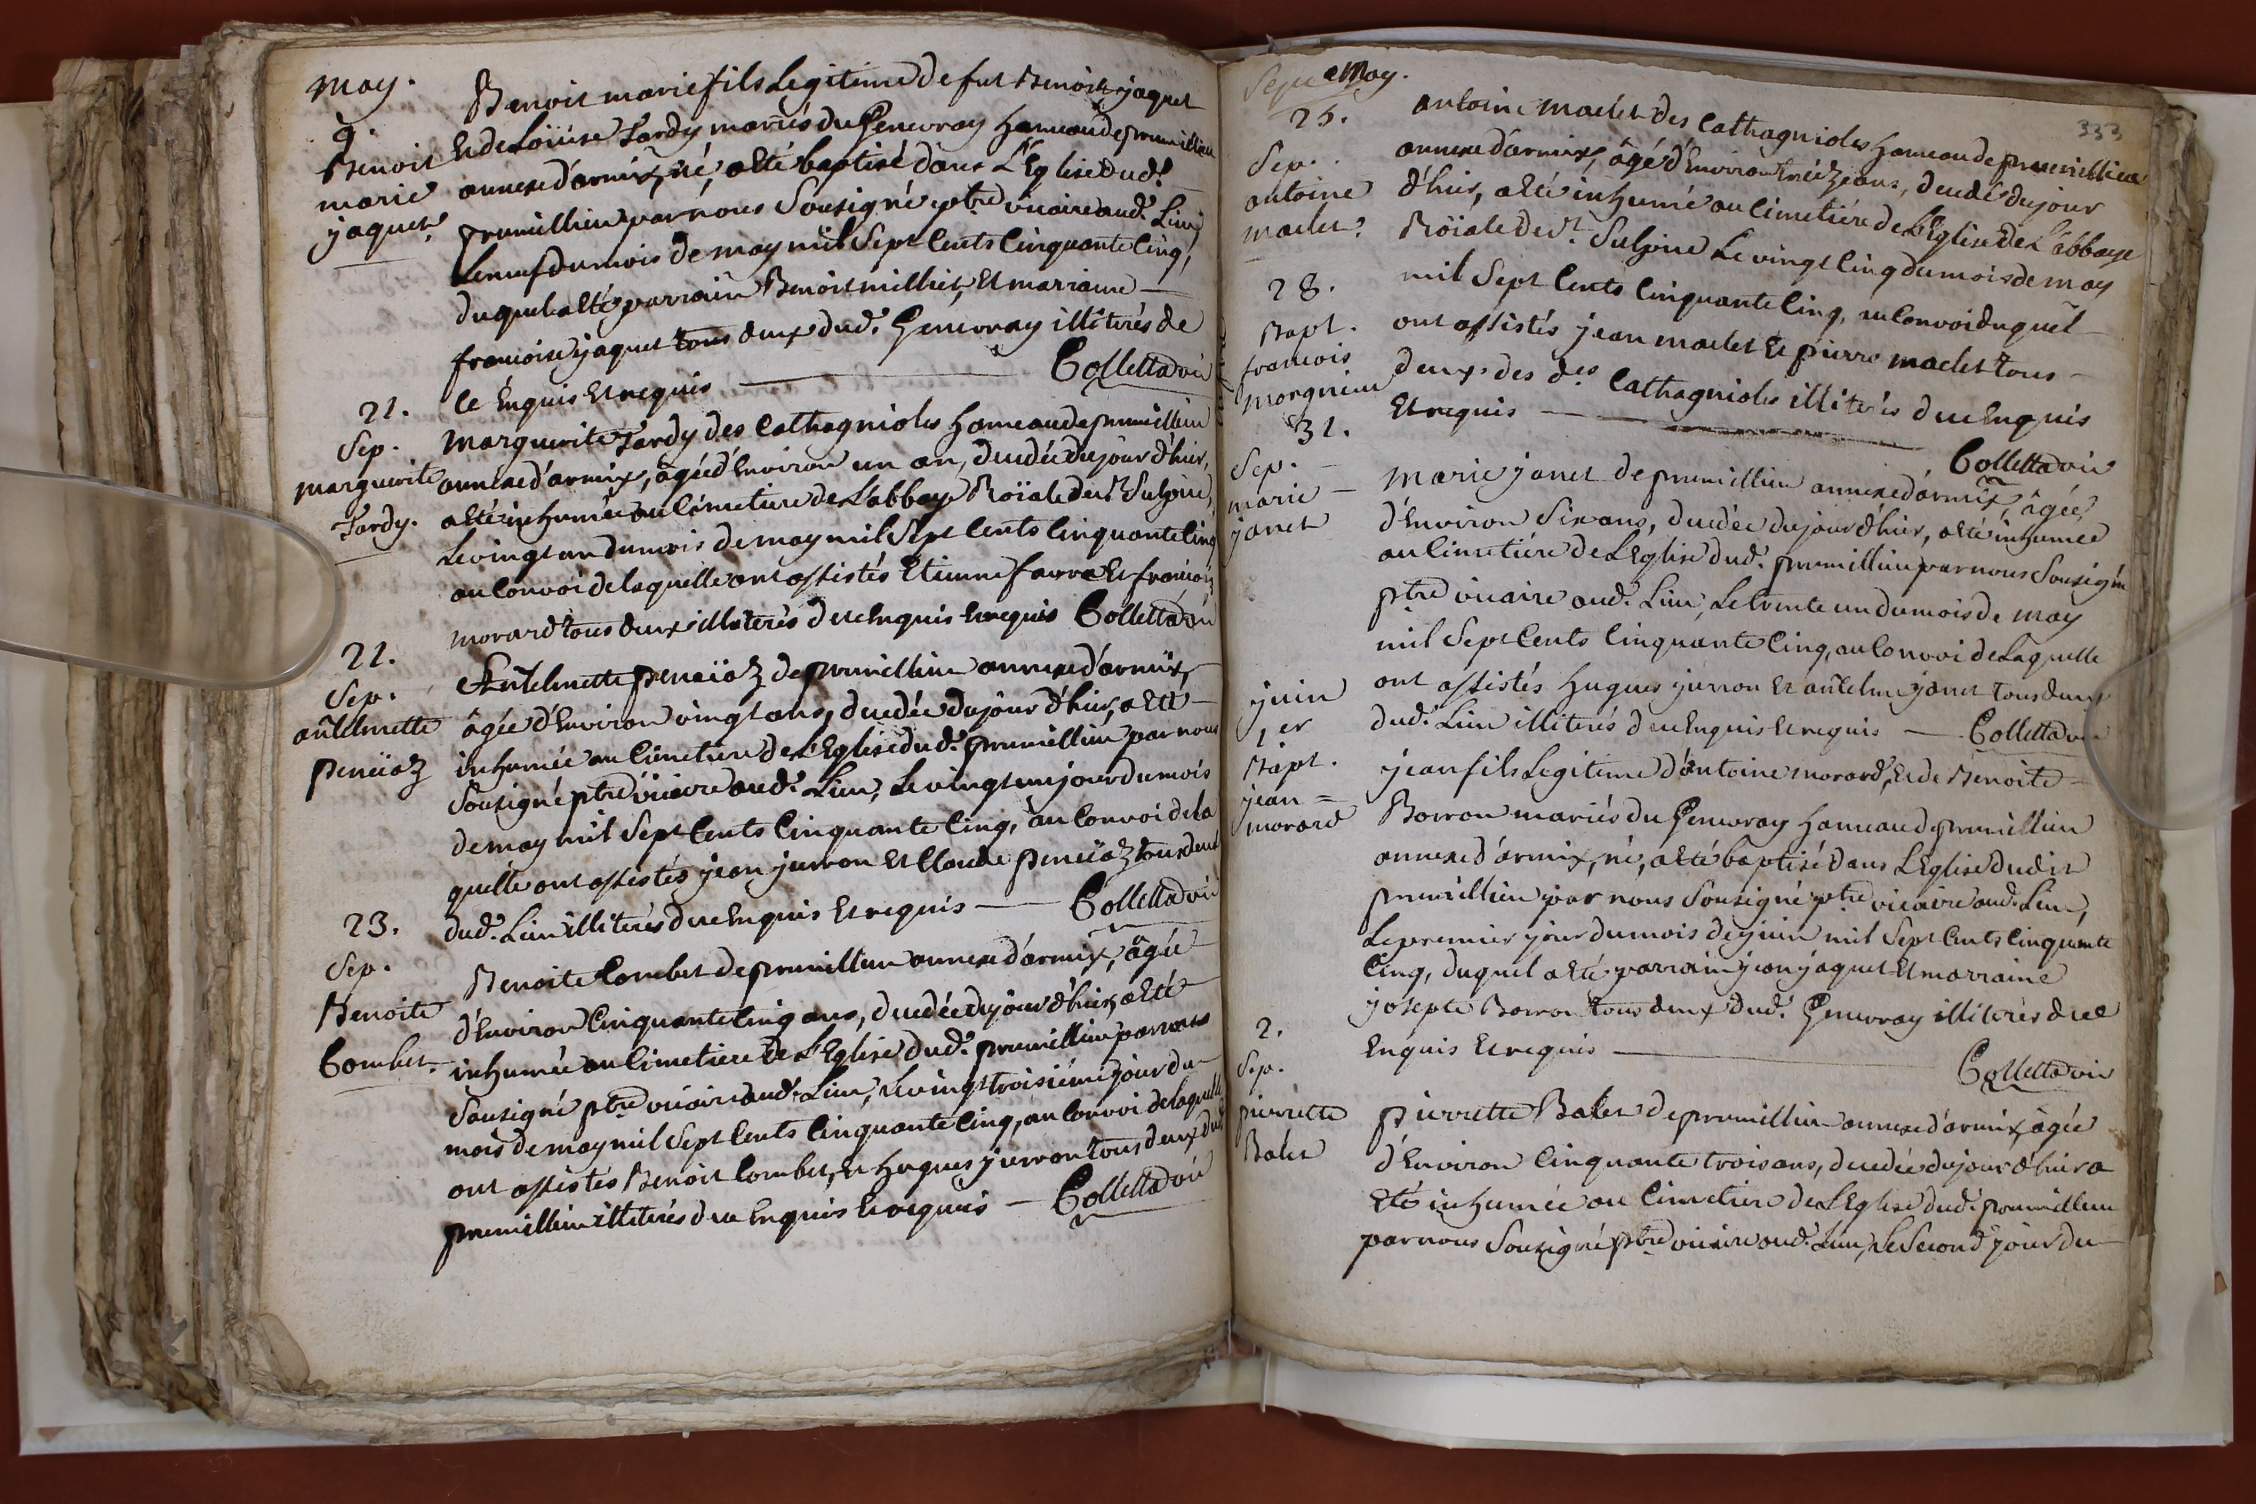 may.
9.
Benoit
marie
jaquet.
Benoit marie fils Legitime de fut Benoit jaquet
Et de Loüise Tardy mariés du Genevray hameau de premillieu
annexe d'armix, né, a Eté baptisé dans L'Eglise dud.
premillieu par nous Sousigné ptre vicaire aud. Lieu
Le neuf du mois de may mil Sept Cents Cinquante Cinq,
duquel a Eté parrain Benoit milliet, Et marraine
francoise jaquet tous deux dud. Genevray illiterés de
ce Enquis Et requis Colletta vic
21.
Sep.
marguerite
Tardy.
marguerite Tardy des Cathagnioles hameau de premillieu
annexe d'armix, âgée d'Environ un an, decedée du jour d'hier,
a Eté inhumée au Cimetiere de L'abbaye Roïale de St. Sulpice,
Le vingt un du mois de may mil Sept Cents Cinquante Cinq
au Convoi de laquelle ont assistés Etienne favre Et francois
morard tous deux illiterés de ce Enquis Et requis Colletta vic
21.
Sep.
antelmette
peneïaz
Antelmette peneïaz de premillieu annexe d'armix,
âgée d'Environ vingt ans, decedée du jour d'hier, a Eté
inhumée au Cimetiere de L'Eglise dud. premillieu par nous
Sousigné ptre vicaire aud. Lieu, Le vingt un jour du mois
de may mil Sept Cents Cinquante Cinq, au Convoi de la
quelle ont assistés jean jurron Et Claude peneïaz tous deux
dud. Lieu illiterés de ce Enquis Et requis Colletta vic
23.
Sep.
Benoite
Combet.
Benoite Combet de premillieu annexe d'armix, âgée
d'Environ Cinquante Cinq ans, decedée du jour d'hier, a Eté
inhumée au Cimetiere de L'Eglise dud. premillieu par nous
Sousigné ptre vicaire aud. Lieu, Le vingt troisiéme jour du
mois de may mil Sept Cents Cinquante Cinq, au Convoi de laquelle
ont assistés Benoit Combet, Et hugues jurron tous deux dud.
premillieu illiterés de ce Enquis Et requis Colletta vic
may.
333
25.
Sep.
antoine
maclet.
antoine maclet des Cathagnioles hameau de premillieu
annexe d'armix, âgé d'Environ treize ans, decedé du jour
d'hier, a Eté inhumé au Cimetiére de L'Eglise de L'abbaye
Roïale de St. Sulpice Le vingt Cinq du mois de may
mil Sept Cents Cinquante Cinq, au Convoi duquel
ont assistés jean maclet Et pierre maclet tous
deux des des Cathagnioles illiterés de ce Enquis
Et requis
Colletta vic
28.
Bapt.
francois
morgnieu
31.
Sep.
marie
janet
marie janet de premillieu annexe d'armix, âgée
d'Environ Six ans, decedée du jour d'hier, a Eté inhumée
au Cimetiére de L'Eglise dud. premillieu par nous Sousigné
ptre vicaire aud. Lieu, Le trente un du mois de may
mil Sept Cents Cinquante Cinq, au Convoi de Laquelle
ont assistés hugues jurron Et antelme janet tous deux
dud. Lieu illiterés de ce Enquis Et requis Colletta vic
juin
1er
Bapt.
jean =
morard
jean fils Legitime d'antoine morard, Et de Benoite
Borron mariés du Genevray hameau de premillieu
annexe d'armix, né, a Eté baptisé dans L'Eglise dudit
premillieu par nous Sousigné ptre vicaire aud. Lieu,
Le premier jour du mois de juin mil Sept Cents Cinquante
Cinq, duquel a Eté parrain jean jaquet Et marraine
josepte Borron tous deux dud. Genevray illiterés de ce
Enquis Et requis
Colletta vic
2.
Sep.
pierrette
Balet
pierrette Balet de premillieu annexe d'armix, âgée
d'Environ Cinquante trois ans, decedée du jour d'hier a
Eté inhumée au Cimetiere de L'Eglise dud. premillieu
par nous Sousigné ptre vicaire aud. Lieu, Le Second jour du